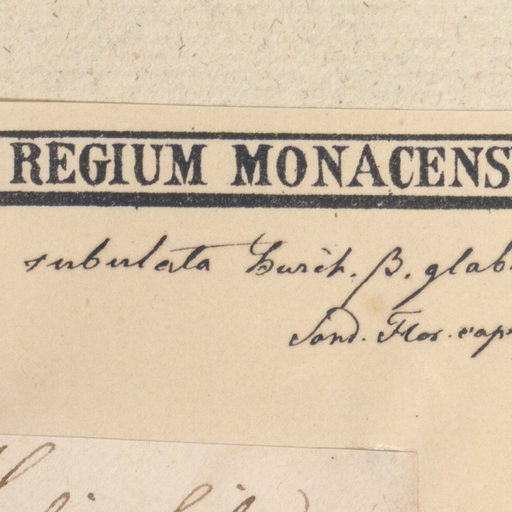 REGIUM MONACENS
subulata Burch. β. glab
Sond. Flor. cap